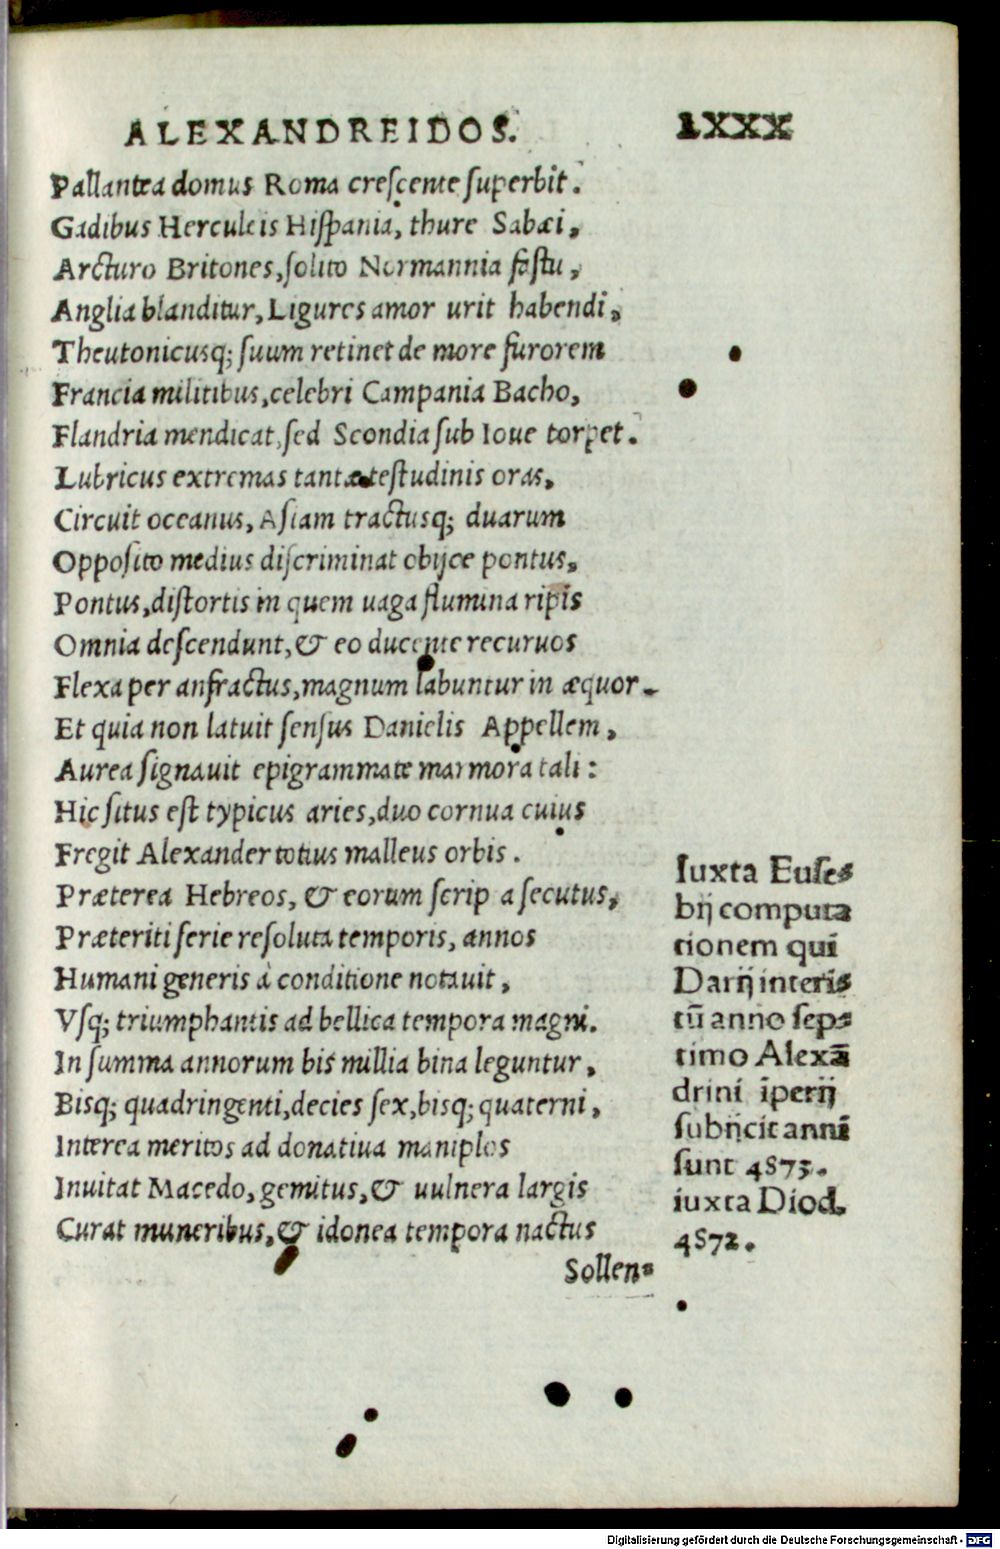 ALEXANDREIDOS. LXXX
Pallantea domus Roma crescente superbit.
Gadibus Herculeis Hispania, thure Sabæi,
Arcturo Britones, solito Normannia fastu,
Anglia blanditur, Ligures amor urit habendi,
Theutonicusq; suum retinet de more furorem
Francia militibus, celebri Campania Bacho,
Flandria mendicat, sed Scondia sub Ioue torpet.
Lubricus extremas tantæ testudinis oras,
Circuit oceanus, Asiam tractusq; duarum
Opposito medius discriminat obijce pontus,
Pontus, distortis in quem uaga flumina ripis
Omnia descendunt, & eo ducente recuruos
Flexa per anfractus, magnum labuntur in æquor.
Et quia non latuit sensus Danielis Appellem,
Aurea signauit epigrammate marmora tali:
Hic situs est typicus aries, duo cornua cuius
Fregit Alexander totius malleus orbis.
Præterea Hebreos, & eorum scrip a secutus,
Præteriti serie resoluta temporis, annos
Humani generis à conditione notauit,
Vsq; triumphantis ad bellica tempora magni.
In summa annorum bis millia bina leguntur,
Bisq; quadringenti, decies sex, bisq; quaterni,
Interea meritos ad donatiua maniplos
Inuitat Macedo, gemitus, & uulnera largis
Curat muneribus, & idonea tempora nactus
Sollen=
Iuxta Euse=
bij computa
tionem qui
Darij interi=
tũ anno sep=
timo Alexã
drini īperij
subijcit anni
sunt 4873.
iuxta Diod.
4872.
Digitalisierung gefördert durch die Deutsche Forschungsgemeinschaft - DFG